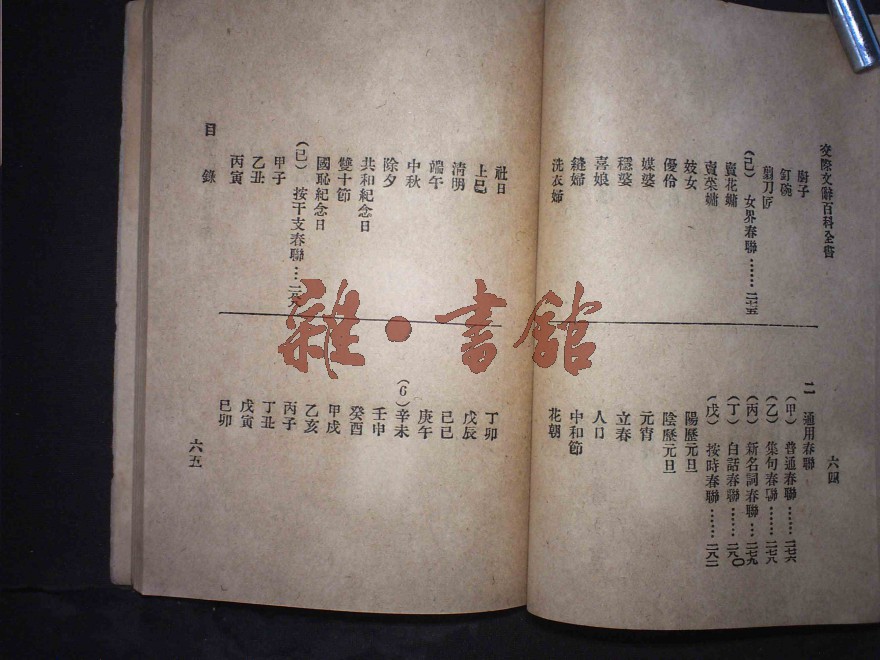 交際文辭百科全書
六四
廚子
釘碗
翦刀匠
(己) 女界春聯………二七五
賣花傭
賣菜傭
妓女
優伶
媒婆
穩婆
喜娘
縫婦
洗衣婦
二 通用春聯
(甲) 普通春聯………二七六
(乙) 集句春聯………二七八
(丙) 新名詞春聯……二七九
(丁) 白話春聯………二八〇
(戊) 按時春聯………二八二
陽歷元旦
陰歷元旦
元宵
立春
人日
中和節
花朝
社日
上巳
清明
端午
中秋
除夕
共和紀念日
雙十節
國恥紀念日
(己) 按干支春聯…
甲子
乙丑
丙寅
丁卯
戊辰
己巳
庚午
(6)辛未
壬申
癸酉
甲戌
乙亥
丙子
丁丑
戊寅
己卯
目錄
六五
雜·書館